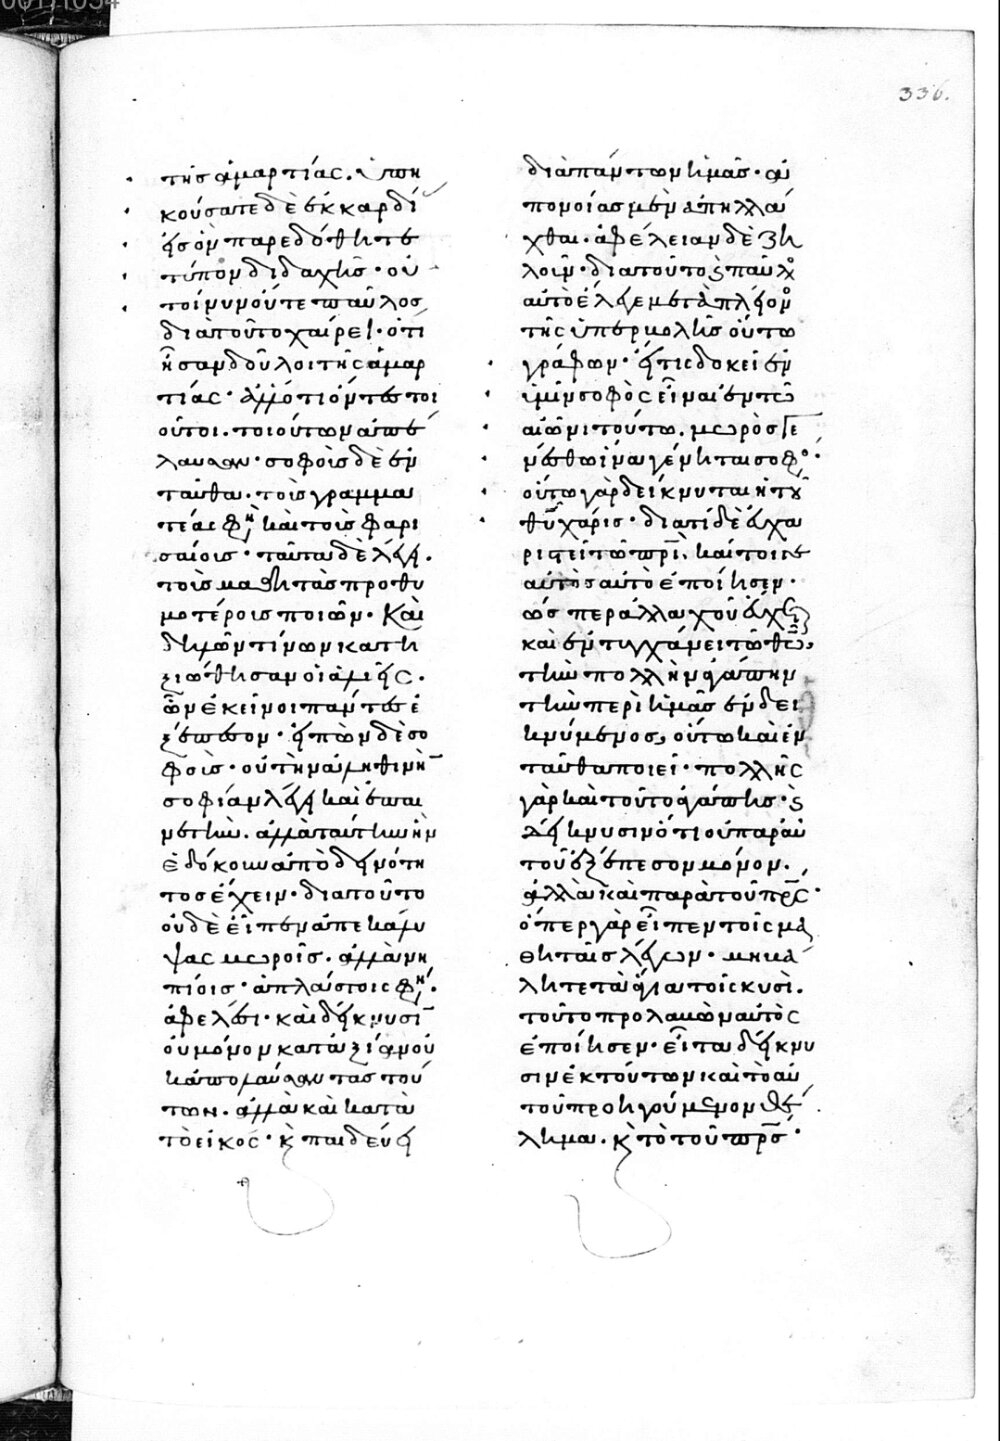 336.
τῆς ἁμαρτίας. ὑπη
κούσατε δὲ ἐκ καρδί
ας εἰς ὃν παρεδόθητε
τύπον διδαχῆς· οὐ
τοίνυν οὔτε παῦλος
διὰ τοῦτο χαίρει· ὅτι
ἦσαν δοῦλοι τῆς ἁμαρ
τίας· ἀλλ' ὅτι ὄντες τοι
οῦτοι. τοιούτων ἀπέ
λαυσαν· σοφοῖς δὲ ἐν
ταῦθα. τοῖς γραμμα
τέασι φη καὶ τοῖς φαρι
σαίοις· ταῦτα δὲ λέγει.
τοὺς μαθητὰς προθυ
μοτέρους ποιῶν· καὶ
δηλῶν τίνων κατη
ξιώθησαν οἱ ἁλιεῖς.
ὧν ἐκεῖνοι πάντες ἐ
ξέπεσον· εἰπὼν δὲ σο
φοῖς· οὐ τὴν ἀληθινὴν
σοφίαν λέγει καὶ ἐπαι
νετήν. ἀλλὰ ταύτην ἣν
ἐδόκουν ἀπὸ δεινότη
τος ἔχειν· διὰ τοῦτο
οὐδὲ εἶπεν ἀπεκάλυ
ψας μωροῖς. ἀλλὰ νη
πίοις· ἀπλάστοις φη.
ἀφελέσι· καὶ δείκνυσιν
οὐ μόνον κατ' ἀξίαν οὐ
κ ἀπολαύσαντας τού
των. ἀλλὰ καὶ κατὰ
τὸ εἰκός· κ παιδεύει
διὰ πάντων ἡμᾶς· ἀ
πονοίας μὲν ἀπηλλά
χθαι· ἀφέλειαν δὲ ζη
λοῦν· διὰ τοῦτο κ παῦλος
αὐτὸ ἔλεγε μετὰ πλείονος
τῆς ὑπερβολῆς οὕτω
γράφων· εἴ τις δοκεῖ ἐν
ὑμῖν σοφὸς εἶναι ἐν τῶ
αἰῶνι τούτω. μωρὸς γε
νέσθω ἵνα γένηται σοφος·
οὕτω γὰρ δείκνυται ἡ του
θυ χάρις· διατί δὲ εὐχα
ριστεῖ τῶ πρι. καίτοιγε
αὐτὸς αὐτὸ ἐποίησεν·
ὥσπερ ἀλλαχοῦ εὔχεται
καὶ ἐντυγχάνει τῶ θω,
τὴν πολλὴν ἀγάπην
τὴν περὶ ἡμᾶς ἐνδει
κνύμενος, οὕτω καὶ ἐν
ταῦθα ποιεῖ· πολλῆς
γὰρ καὶ τοῦτο ἀγάπης· κ
δείκνυσιν ὅτι οὐ παρ' αὐ
τοῦ ἐξέπεσον μόνον.
ἀλλὰ καὶ παρὰ τοῦ πρς·
ὅπερ γὰρ εἶπεν τοῖς μα
θηταῖς λέγων· μὴ βά
λητε τὰ ἅγια τοῖς κυσί.
τοῦτο προλαβὼν αὐτὸς
ἐποίησεν· εἶτα δείκνυ
σιν ἐκ τούτων καὶ τὸ αὐ
τοῦ προηγούμενον θέ
λημα. κ τὸ τοῦ πρς·